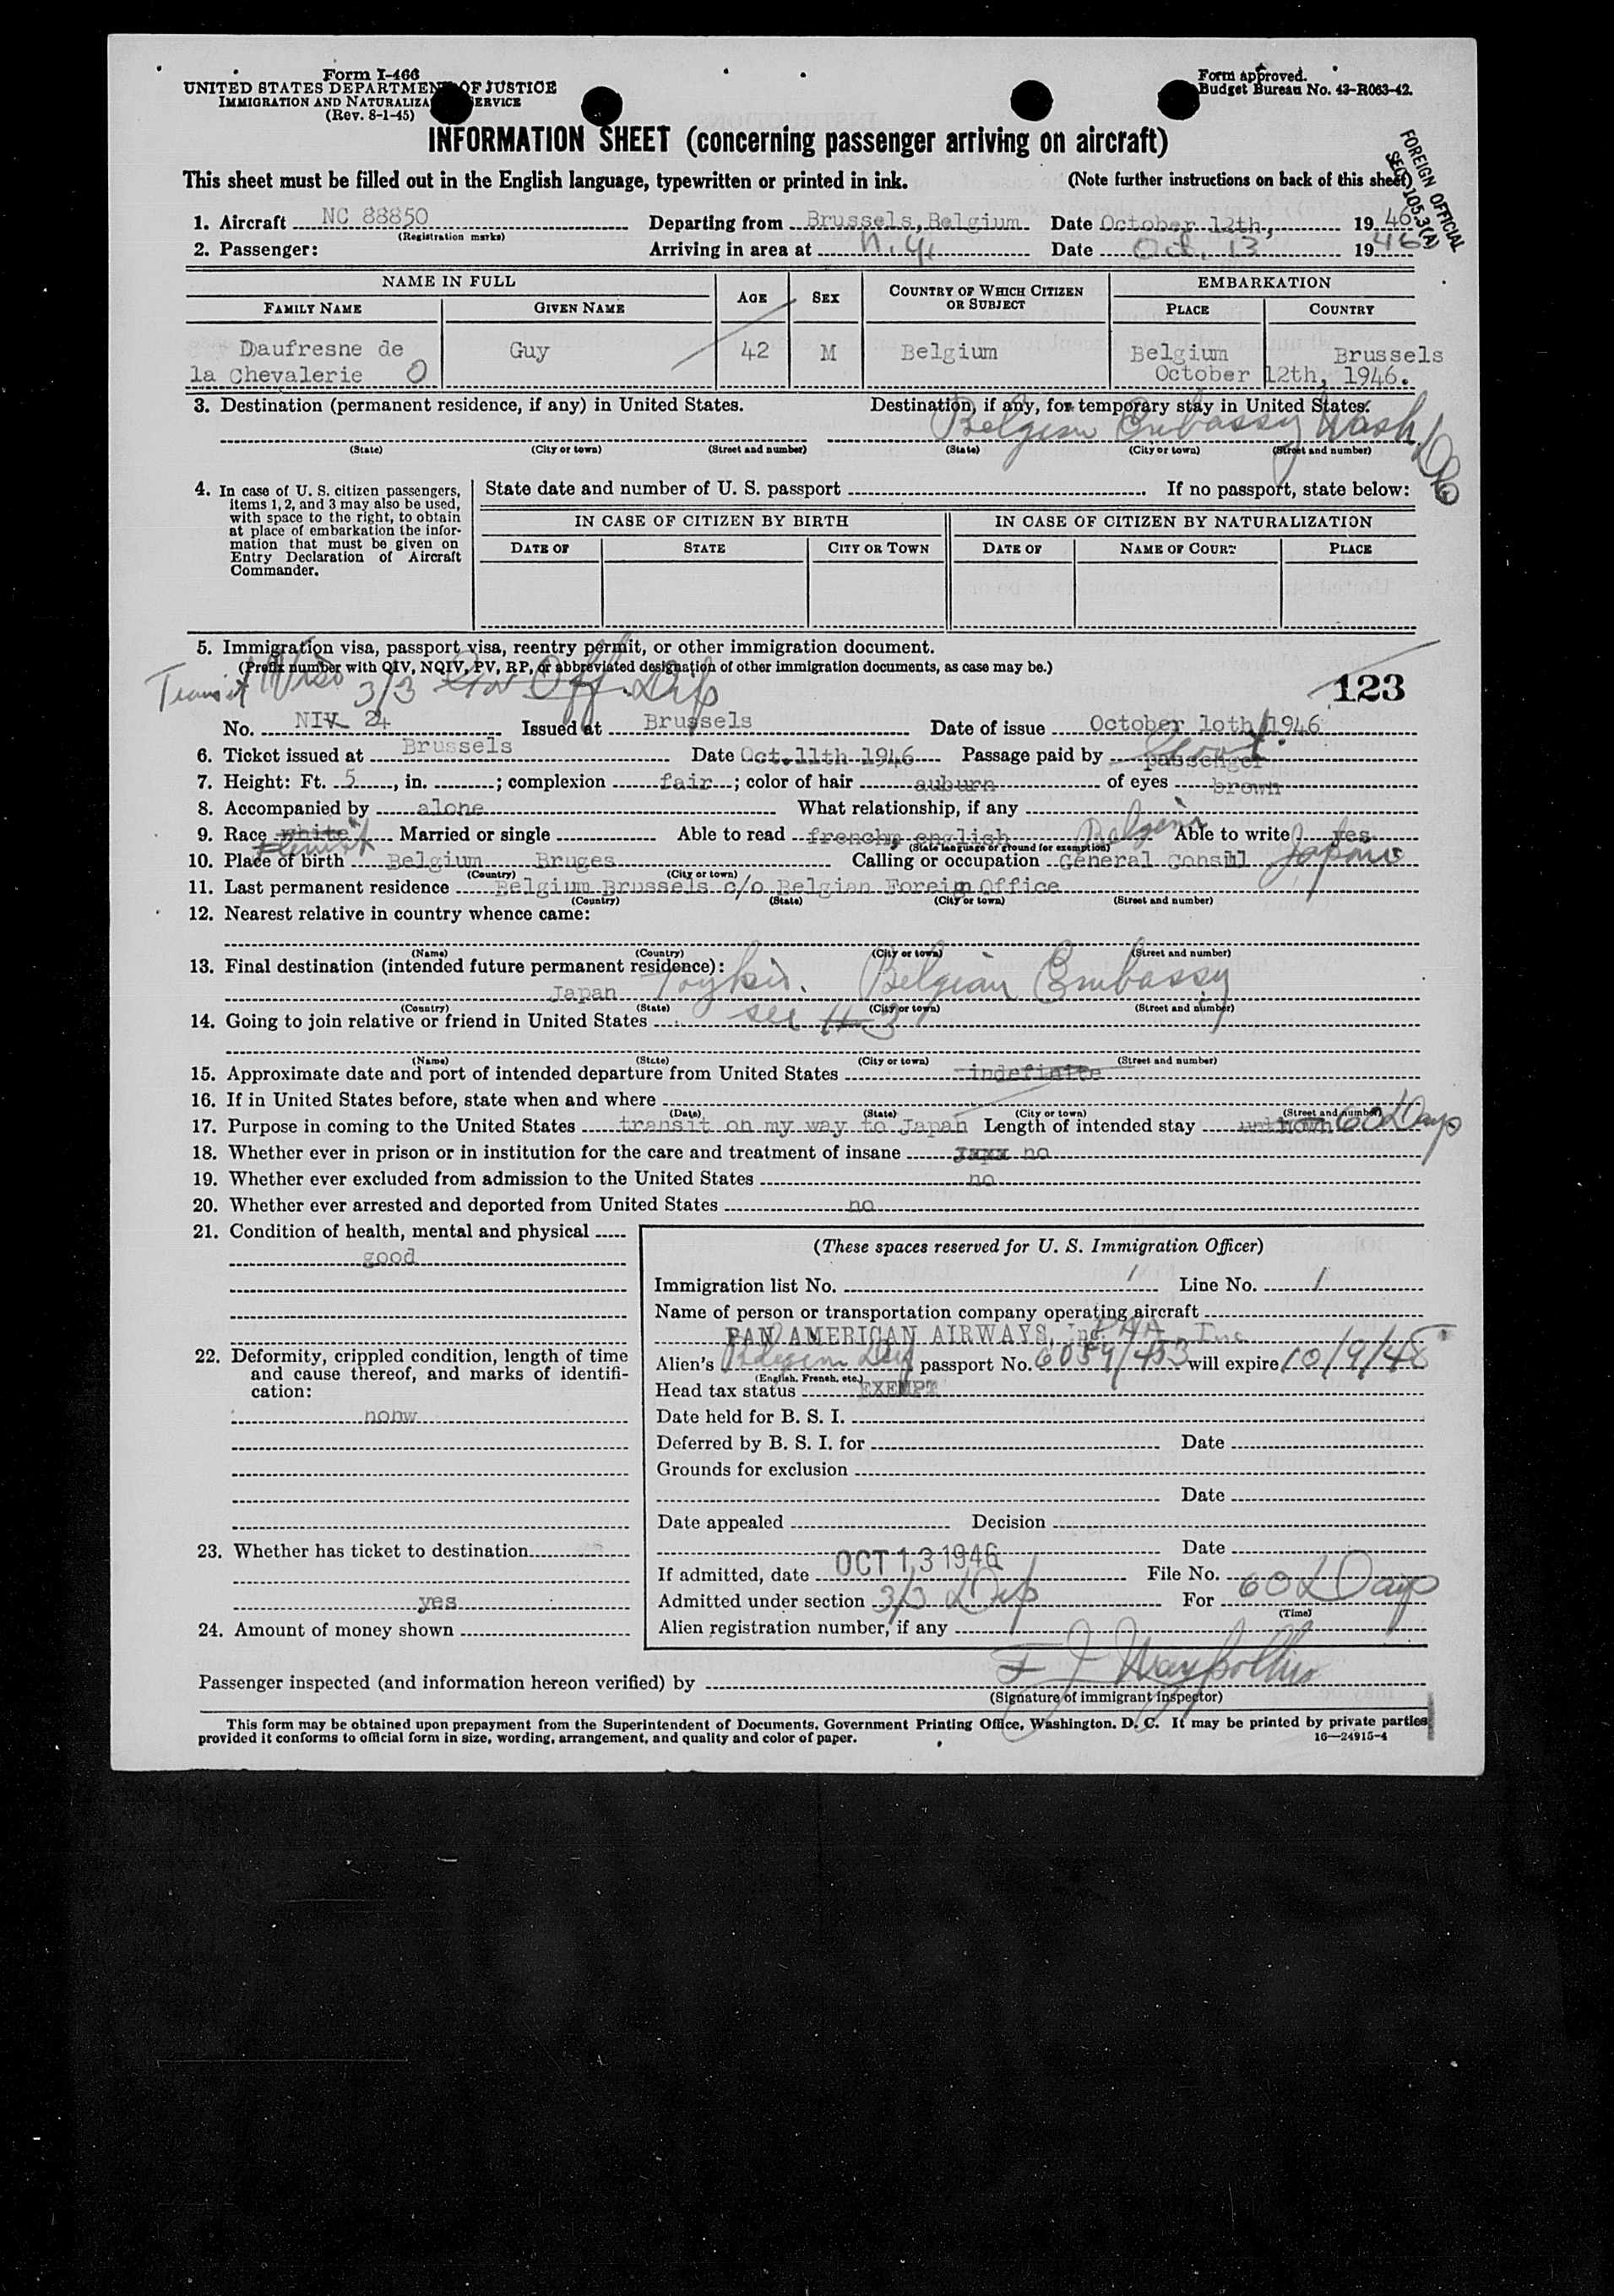 Form I-466
UNITED STATES DEPARTMENT OF JUSTICE
IMMIGRATION AND NATURALIZA SERVICE
(Rev. 8-1-45)
Form approved.
Budget Bureau No. 43-R063-42.
INFORMATION SHEET (concerning passenger arriving on aircraft)
FOREIGN OFFICIAL
SEC. 105.3(A)
This sheet must be filled out in the English language, typewritten or printed in ink. (Note further instructions on back of this sheet)
1. Aircraft NC 88850 Departing from Brussels, Belgium Date October 12th, 1946
(Registration marks)
2. Passenger: Arriving in area at N.Y. Date Oct. 13 1946
NAME IN FULL AGE SEX COUNTRY OF WHICH CITIZEN OR SUBJECT EMBARKATION
FAMILY NAME GIVEN NAME PLACE COUNTRY
Daufresne de Guy 42 M Belgium Belgium Brussels
la Chevalerie O October 12th, 1946.
3. Destination (permanent residence, if any) in United States. Destination, if any, for temporary stay in United States.
Belgian Embassy Wash DC
(State) (City or town) (Street and number) (State) (City or town) (Street and number)
4. In case of U. S. citizen passengers, items 1, 2, and 3 may also be used, with space to the right, to obtain at place of embarkation the infor-
mation that must be given on Entry Declaration of Aircraft Commander.
State date and number of U. S. passport If no passport, state below:
IN CASE OF CITIZEN BY BIRTH IN CASE OF CITIZEN BY NATURALIZATION
DATE OF STATE CITY OR TOWN DATE OF NAME OF COURT PLACE
5. Immigration visa, passport visa, reentry permit, or other immigration document.
(Prefix number with QIV, NQIV, PV, RP, or abbreviated designation of other immigration documents, as case may be.)
Transit Visa 3/3 Off. Dip
123
No. NIV 24 Issued at Brussels Date of issue October 10th 1946
6. Ticket issued at Brussels Date Oct.11th 1946 Passage paid by passenger Govt.
7. Height: Ft. 5, in. ; complexion fair ; color of hair auburn of eyes brown
8. Accompanied by alone What relationship, if any
9. Race white Flemish Married or single Able to read french, english Belgium Able to write yes
(State language or ground for exemption)
10. Place of birth Belgium Bruges Calling or occupation General Consul Japan
(Country) (City or town)
11. Last permanent residence Belgium Brussels c/o Belgian Foreign Office
(Country) (State) (City or town) (Street and number)
12. Nearest relative in country whence came:
(Name) (Country) (City or town) (Street and number)
13. Final destination (intended future permanent residence):
Japan Toykio. Belgian Embassy
(Country) (State) (City or town) (Street and number)
14. Going to join relative or friend in United States see # 3
(Name) (State) (City or town) (Street and number)
15. Approximate date and port of intended departure from United States indefinite
16. If in United States before, state when and where
(Date) (State) (City or town) (Street and number)
17. Purpose in coming to the United States transit on my way to Japan Length of intended stay unknown 60 Days
18. Whether ever in prison or in institution for the care and treatment of insane no
19. Whether ever excluded from admission to the United States no
20. Whether ever arrested and deported from United States no
21. Condition of health, mental and physical
good
22. Deformity, crippled condition, length of time and cause thereof, and marks of identifi-
cation:
nonw
23. Whether has ticket to destination
yes
24. Amount of money shown
(These spaces reserved for U. S. Immigration Officer)
Immigration list No. 1 Line No. 1
Name of person or transportation company operating aircraft
PAN AMERICAN AIRWAYS, Inc. PAA Inc
Alien's Belgium Dip passport No. 6059/453 will expire 10/9/48
(English, French, etc.)
Head tax status EXEMPT
Date held for B. S. I.
Deferred by B. S. I. for Date
Grounds for exclusion
Date
Date appealed Decision
Date
If admitted, date OCT 13 1946 File No.
Admitted under section 3/3 Dip For 60 Days
(Time)
Alien registration number, if any
Passenger inspected (and information hereon verified) by F J
(Signature of immigrant inspector)
This form may be obtained upon prepayment from the Superintendent of Documents, Government Printing Office, Washington, D. C. It may be printed by private parties
provided it conforms to official form in size, wording, arrangement, and quality and color of paper. 16—24915-4